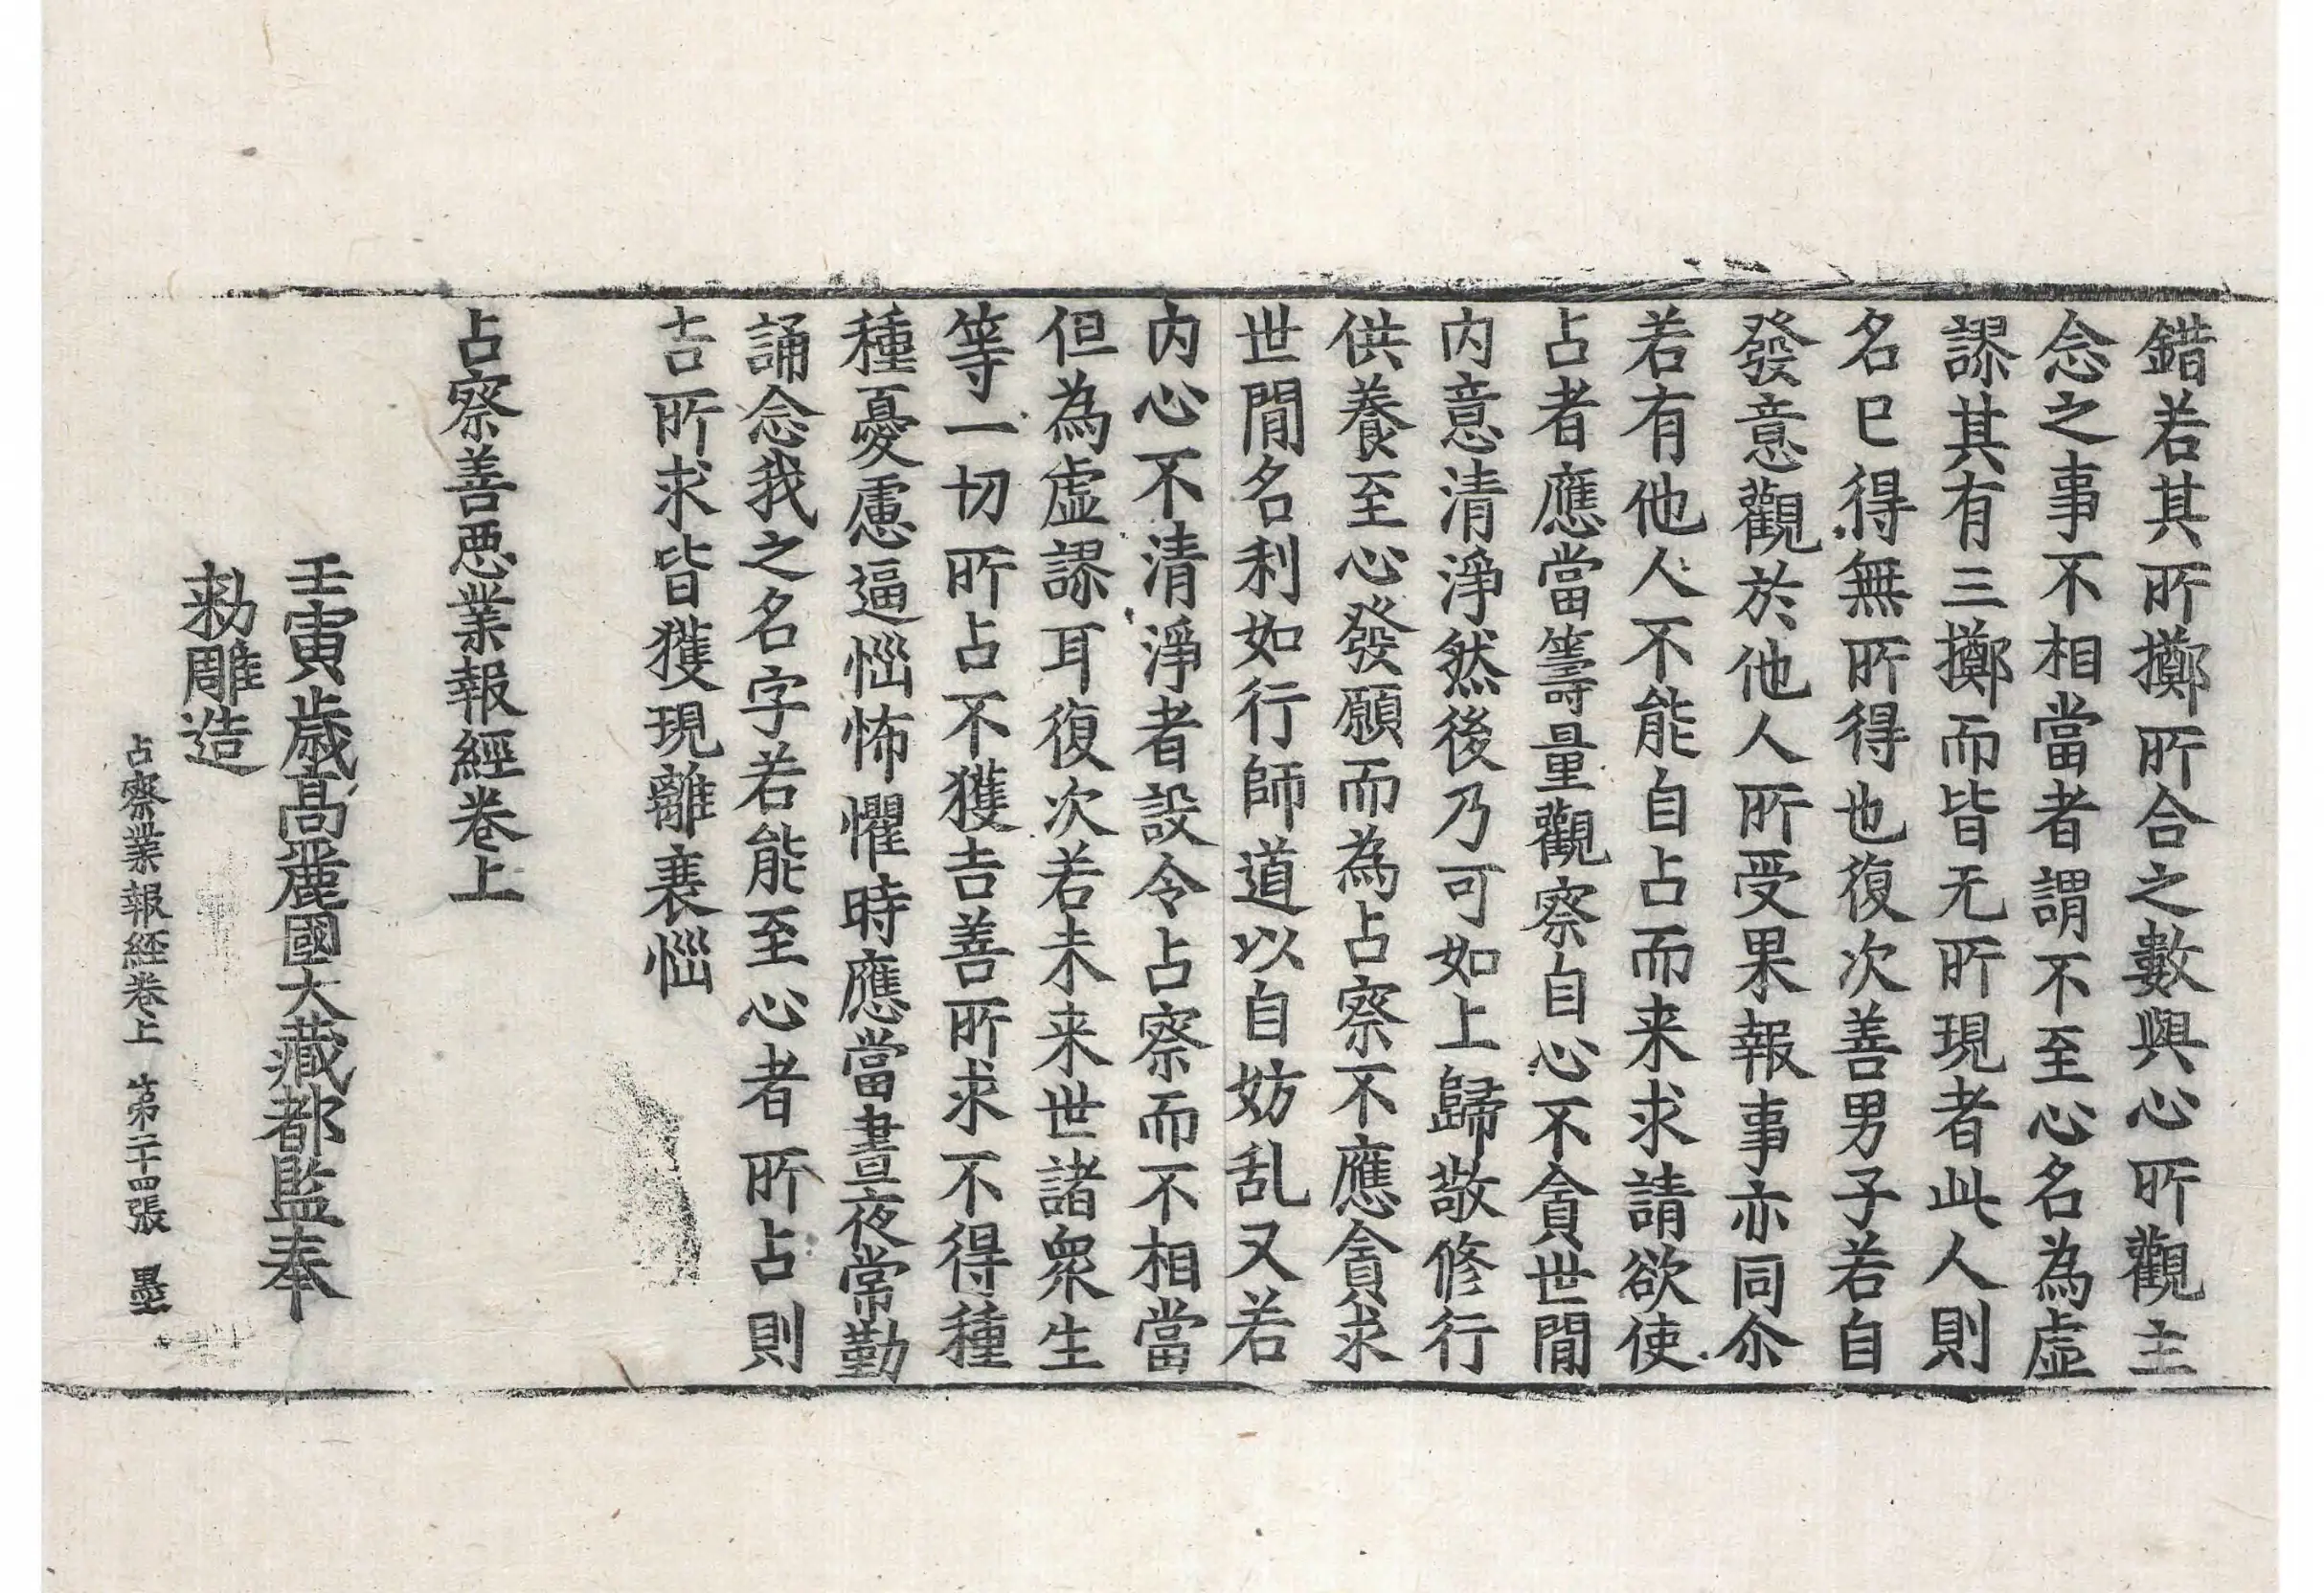 錯若其所擲所合之數與心所觀主
念之事不相當者謂不至心名為虛
謬其有三擲而皆无所現者此人則
名已得無所得也復次善男子若自
發意觀於他人所受果報事亦同尒
若有他人不能自占而来求請欲使
占者應當籌量觀察自心不貪世間
内意清淨然後乃可如上歸敬修行
供養至心發願而為占察不應貪求
世間名利如行師道以自妨乱又若
内心不清淨者設令占察而不相當
但為虛謬耳復次若未来世諸衆生
等一切所占不獲吉善所求不得種
種憂慮逼惱怖懼時應當晝夜常勤
誦念我之名字若能至心者所占則
吉所求皆獲現離衰惱
占察善惡業報經卷上
壬寅歲高麗國大藏都監奉
勅雕造
占察業報経卷上 第二十四張 墨